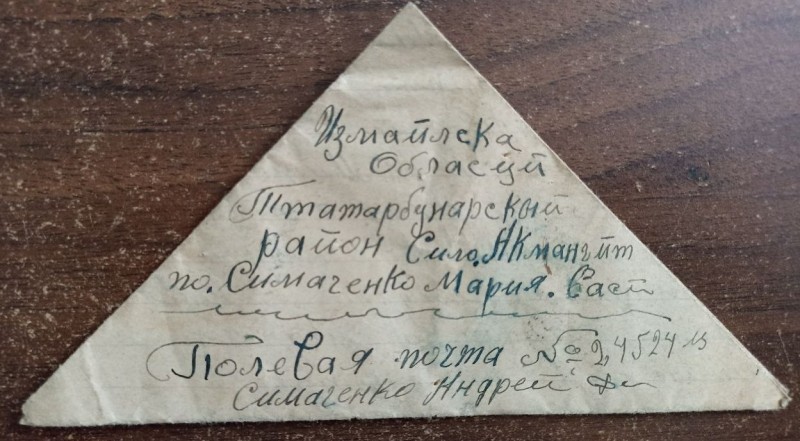 Измайлска
Обласџи
Ттатарбунарский
район Сило. Акмангит
по. Симаченко Мария. Васт
Полевая почта № 24524
Симаченко Андрей